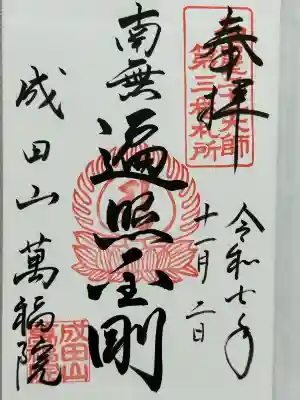 奉拝
第三番札所
令和七年
十一月二日
南無
遍照金剛
成田山萬福院
成田山
萬福院